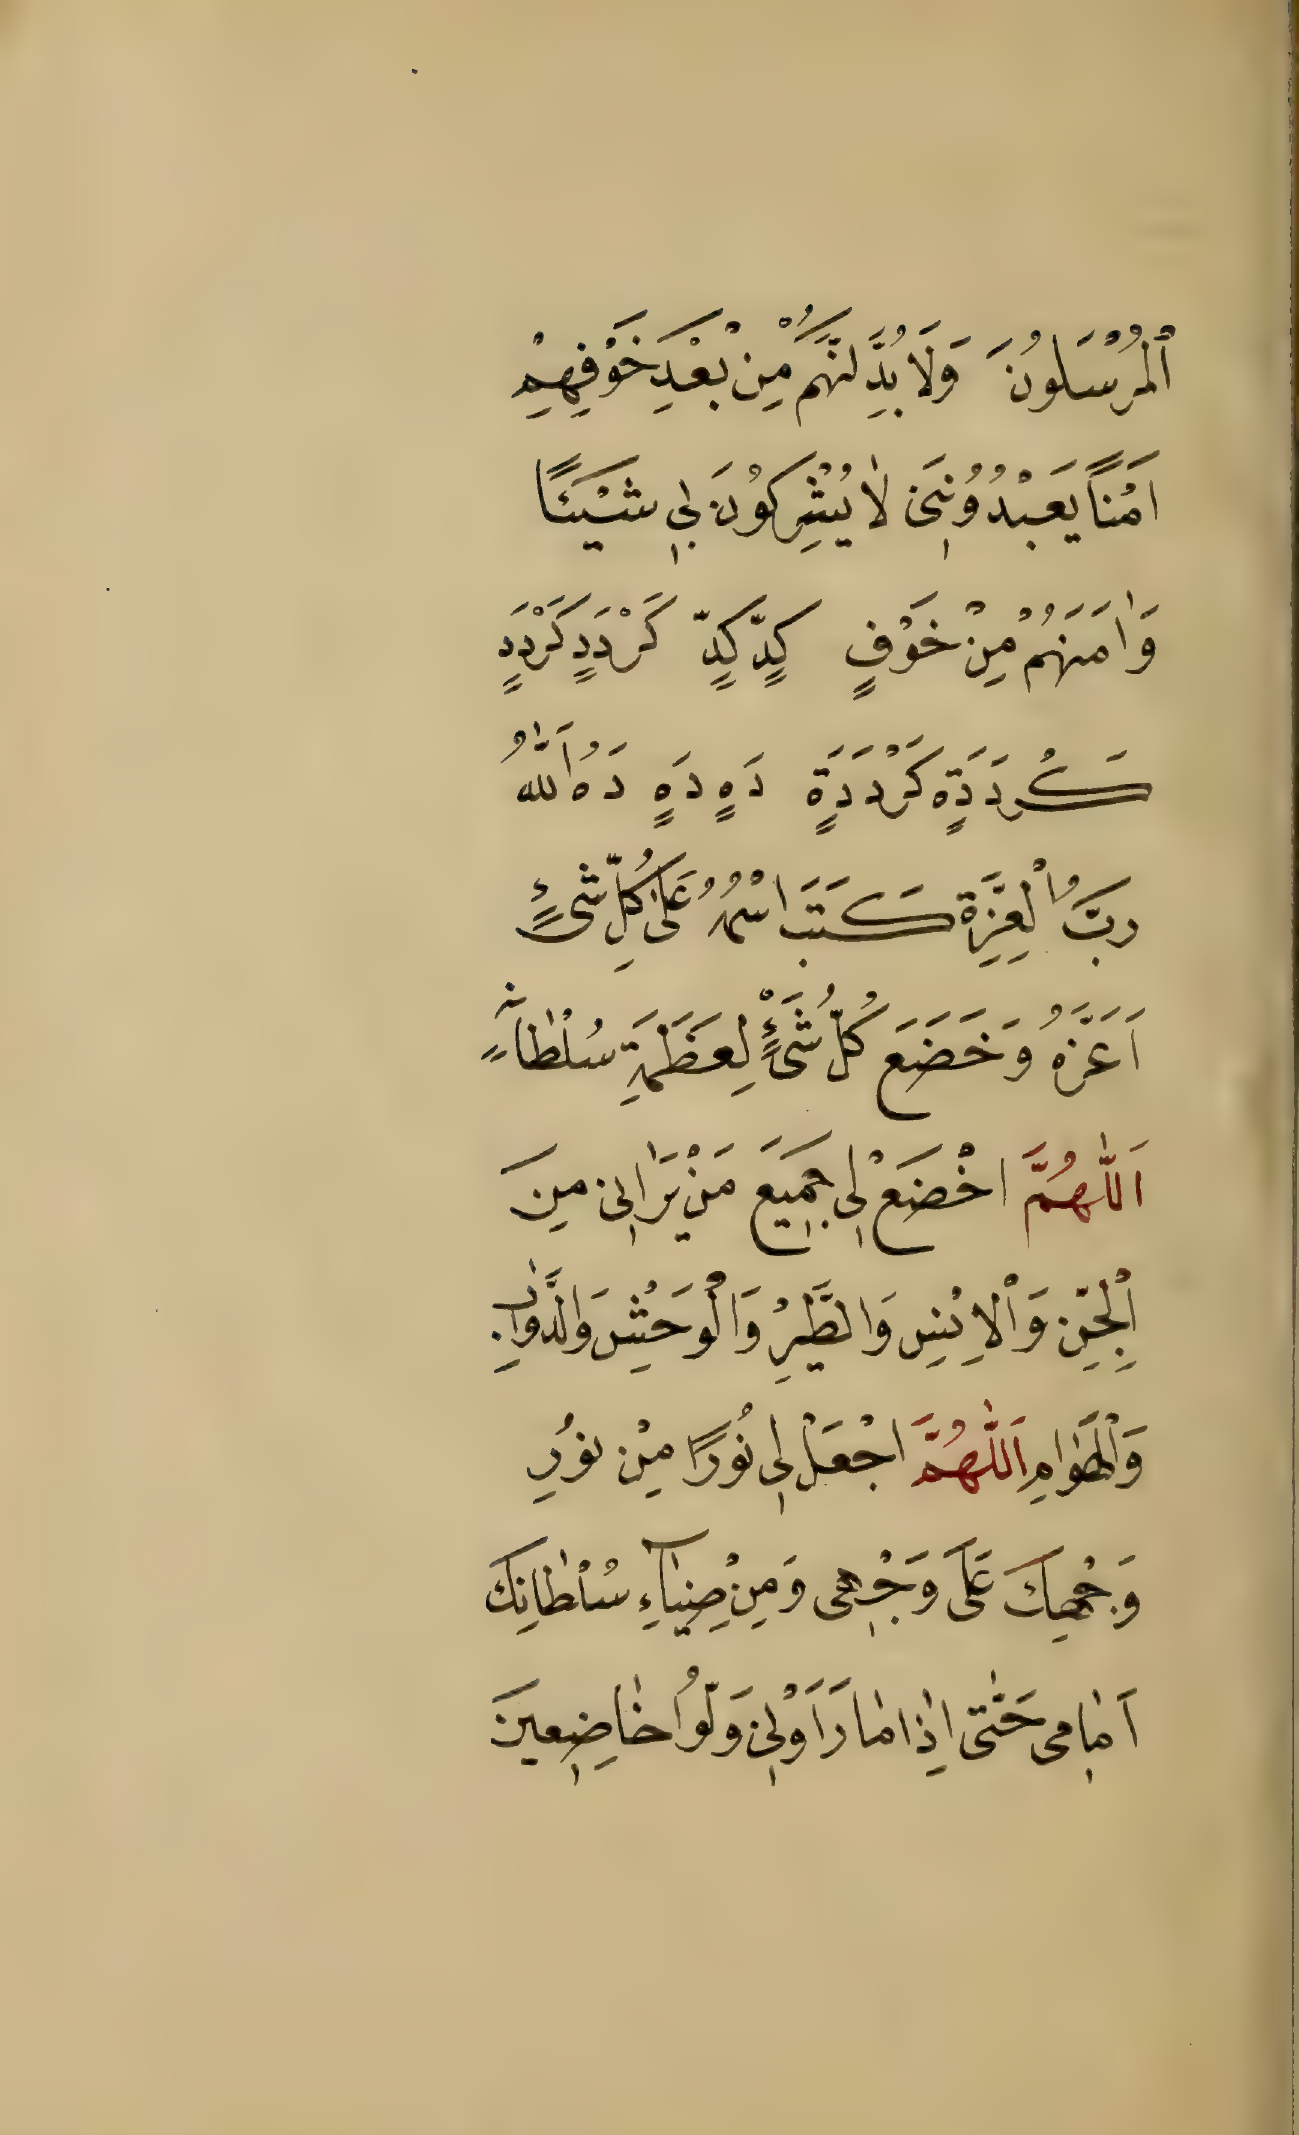 اَلْمُرْسَلُونَ وَلَا بُدِّلَنَّهُمْ مِنْ بَعْدِ خَوْفِهِمْ
اَمْنًا يَعْبُدُونَنِى لَا يُشْرِكُونَ بِى شَيْئًا
وَاٰمَنَهُمْ مِنْ خَوْفٍ كَدٍّ كَدٍّ كَرْدَدٍ كَرْدَدٍ
كَرْدَدَةٍ كَرْدَدَةٍ دَهٍ دَهٍ دَهُ اَللّٰهُ
رَبُّ الْعِزَّةِ كَتَبَ اسْمُهُ عَلٰى كُلِّ شَىْءٍ
اَعَزَّهُ وَخَضَعَ كُلُّ شَىْءٍ لِعَظَمَةِ سُلْطَانِهِ
اَللّٰهُمَّ اخْضَعْ لِى جَمِيعَ مَنْ يَرَانِى مِنَ
الْجِنِّ وَالْاِنْسِ وَالطَّيْرِ وَالْوَحْشِ وَالدَّوَابِّ
وَالْهَوَامِ اَللّٰهُمَّ اجْعَلْ لِى نُورًا مِنْ نُورِ
وَجْهِكَ عَلٰى وَجْهِى وَمِنْ ضِيَآءِ سُلْطَانِكَ
اَمَامِى حَتّٰى اِذَا مَا رَاَوْنِى وَلَّوْا خَاضِعِينَ